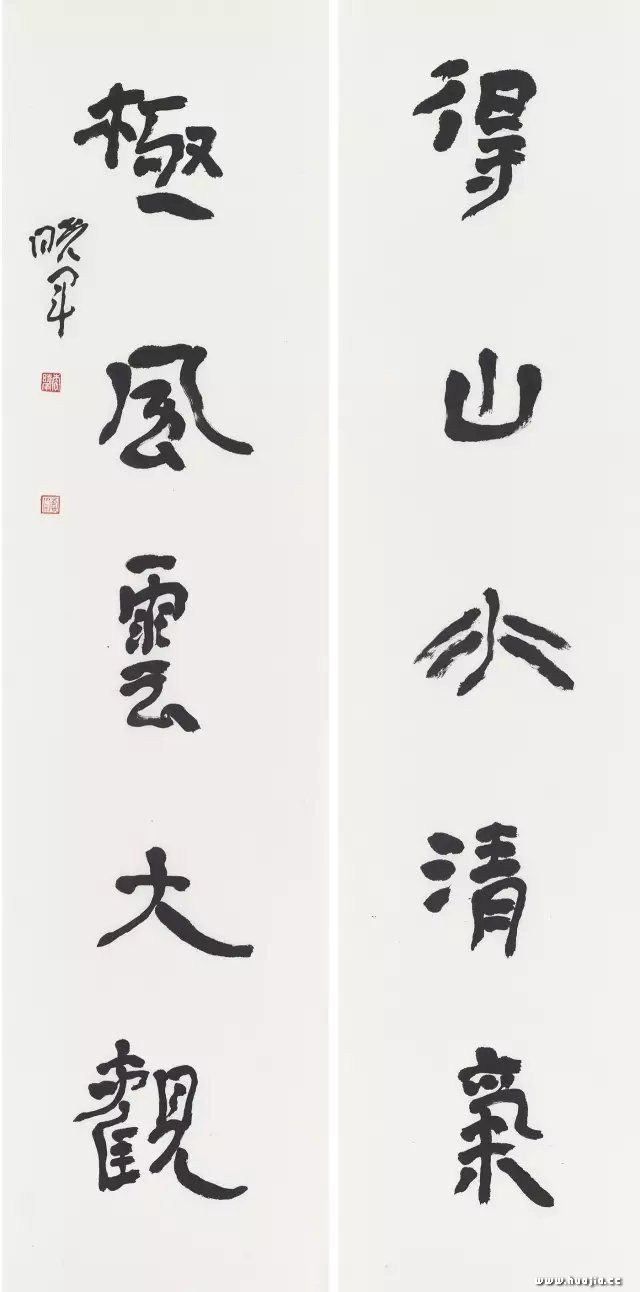 得山水清氣
極風雲大觀
曉軍
www.huajia.cc